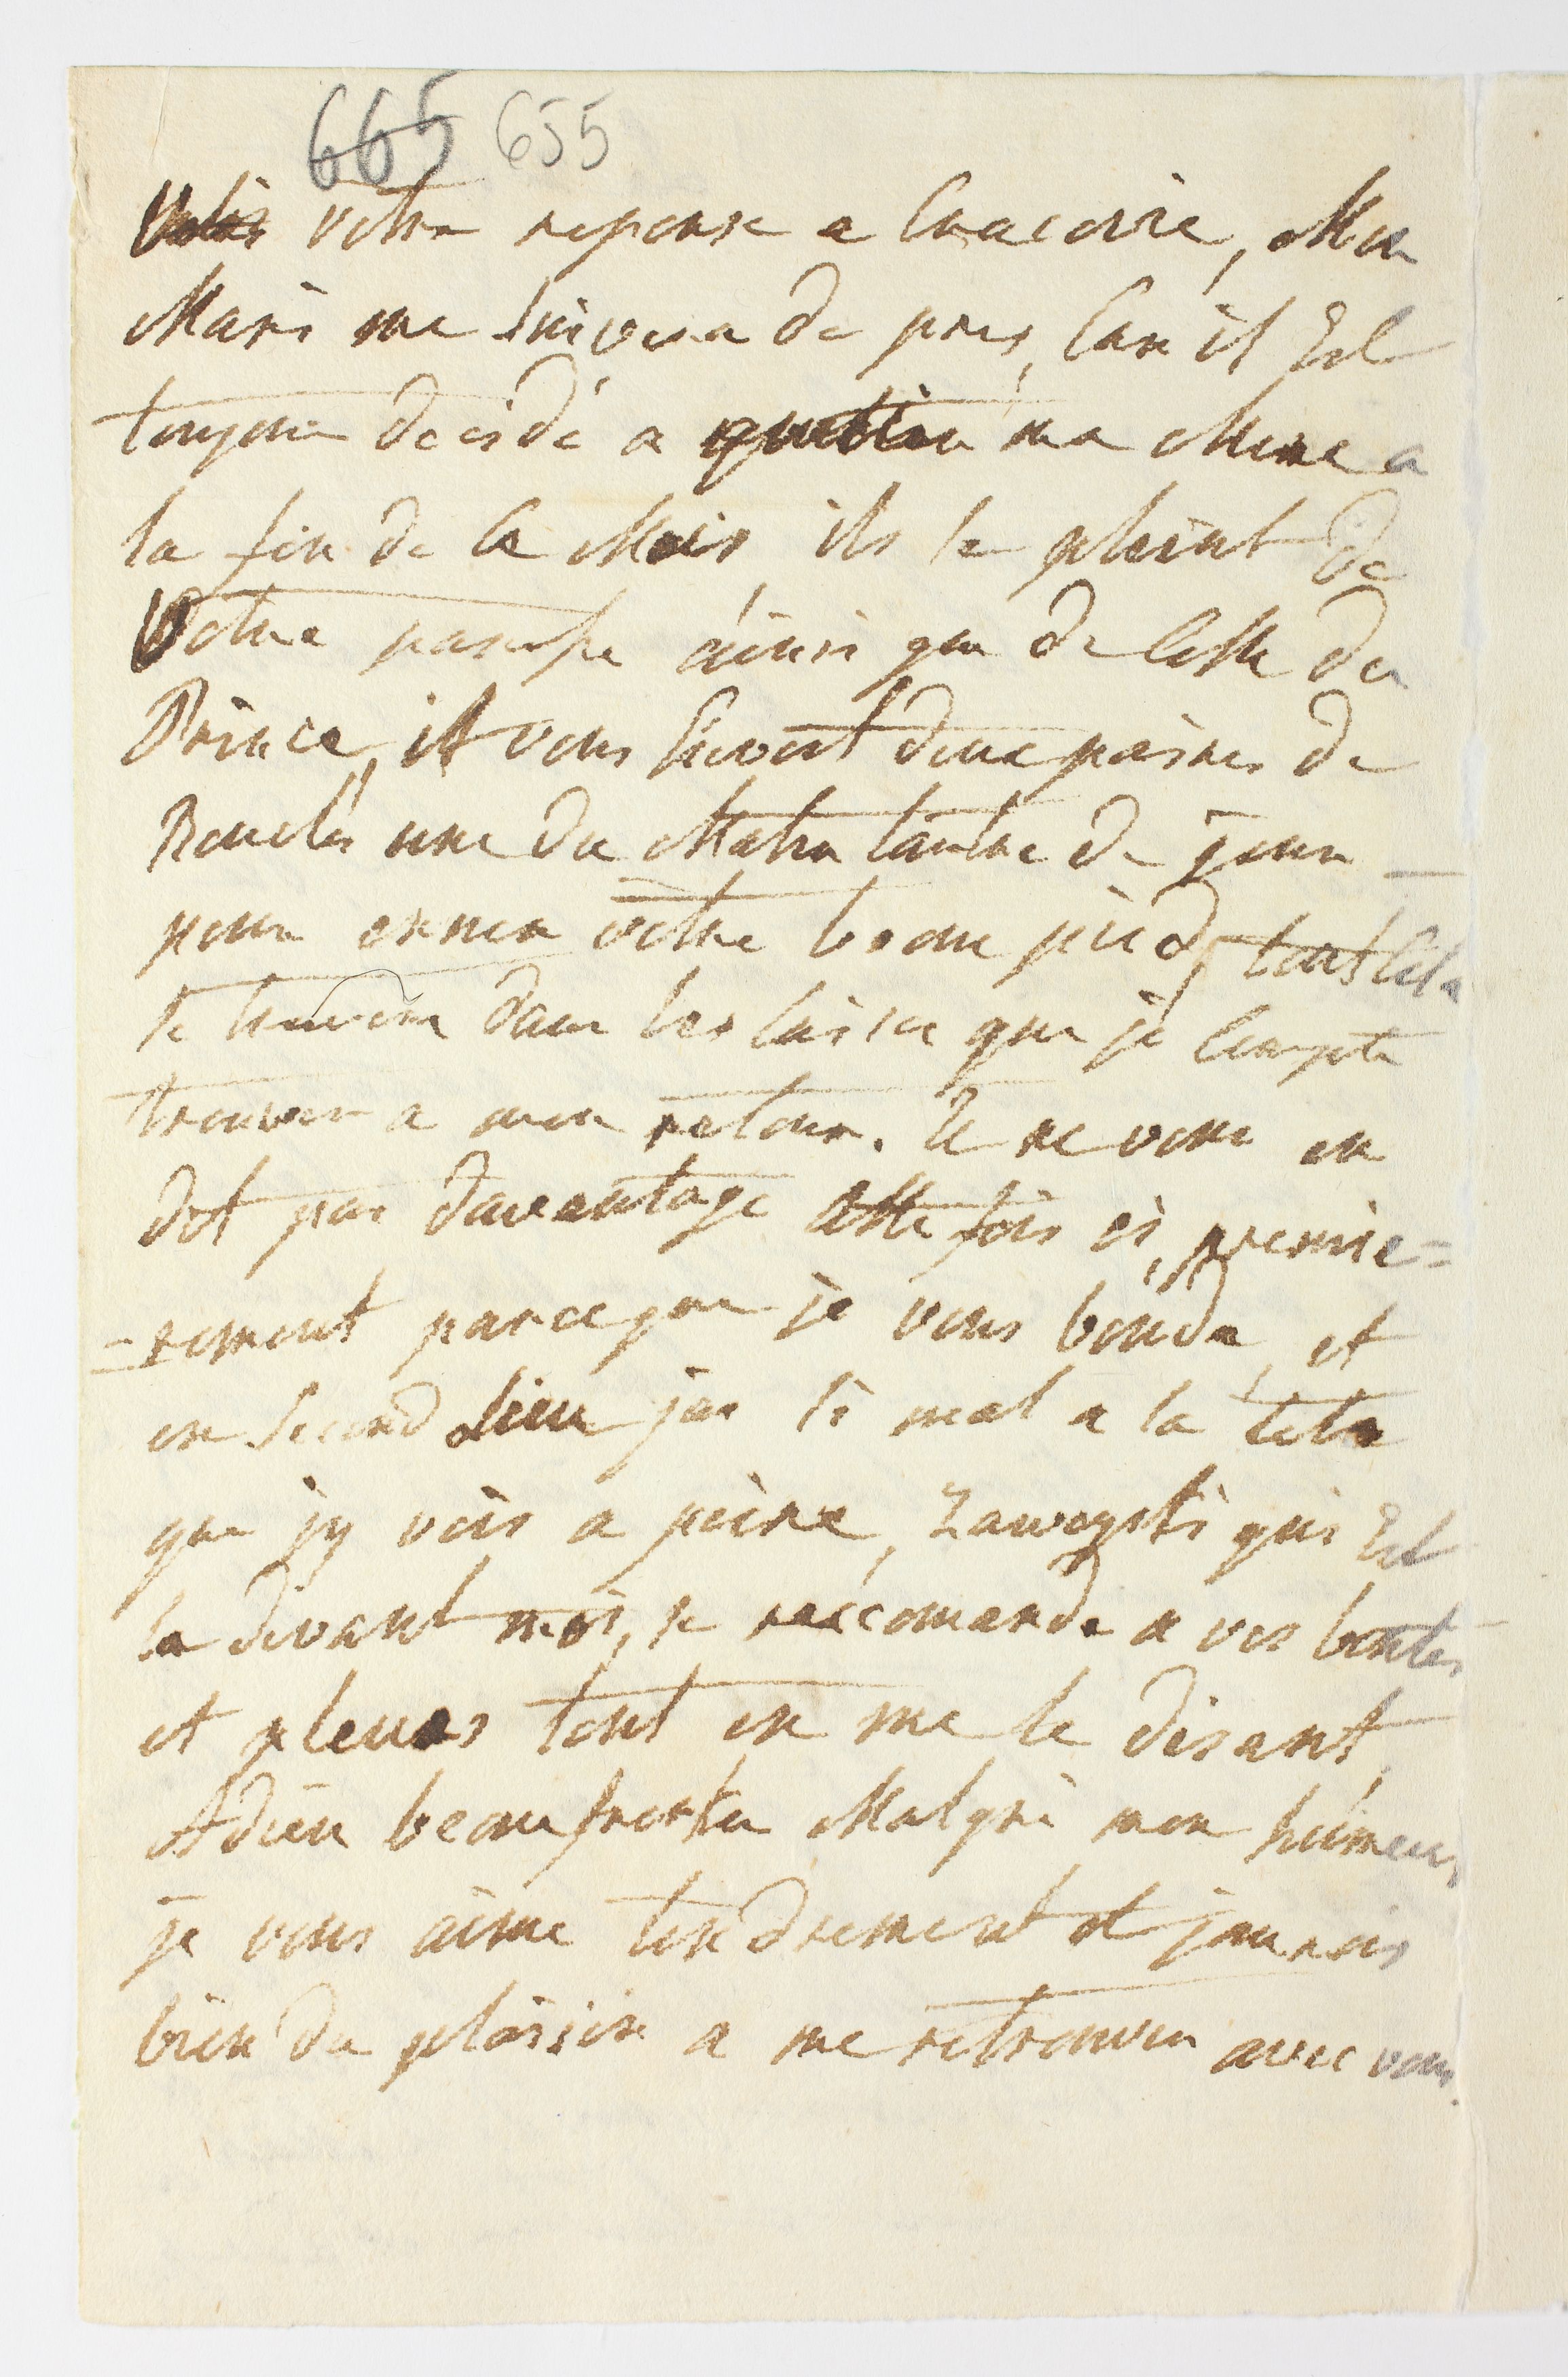 665 655
votre reponse a Cracovie, Mon
Mari me suivera de pres, Car il Est
toujour decidé a quitter ma Mere a
la fin de Ce Mois, ils se pleint de
Votre paresse ainsi que de Celle du
Prince, il vous Envoit deux paires de
Boucles une de Matin lautre de jour
pour orner votre beau pied, tout Cela
se trouvera dans les Caisses que je Compte
trouver a mon retour. Je ne vous en
dit pas davantage Cette fois ci, premie=
=rement parceque je vous boude, et
en Second Lieu jai si mal a la tete
que jy vois a peine, Zawoyski qui Est
la devant moi, se raccomande a vos bontés
et pleurs tout en me le disant,
Adieu beau frerter Malgré mon humeur
je vous aime tendrement et jaurois
bien du plaisir a me retrouver avec vous.